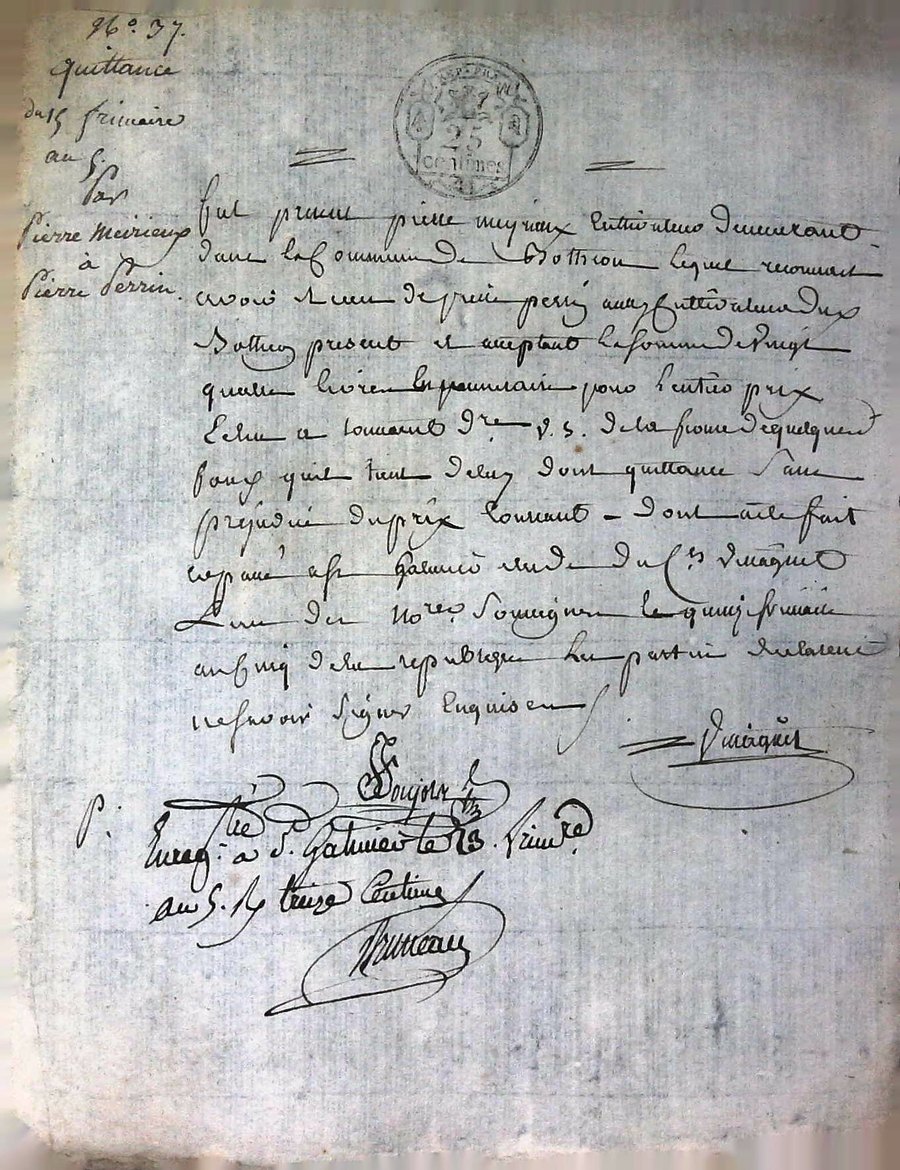 No. 37.
quittance
du 15 frimaire
au 5.
Par
Pierre Meirieux
à
Pierre Perrin.
REP. FRA
25
centimes
fut present pierre meyrieux Cultivateur demeurant
dans la Commune de Botheon lequel reconnait
avoir et reçu de pierre perrin aussy Cultivateur dud
Botheon present et acceptant la Somme de Vingt
quatre livres en pour Lentier prix
Echu a vre v. s. de la ferme de quelques
fonds quil tient de luy dont quittance Sans
prejudice du prix Courant - dont acte fait
et passé a St galmier etude du Cn Vmaguet
Lun des Nores Soussignes le quinze frimaire
an Cinq de la republique Les parties declarent
ne Savoir Signer Enquises
Vmaguet
P.
Enregtré à St. Galmier le 23. frimre
an 5. Rç treize Centimes
Bruneau